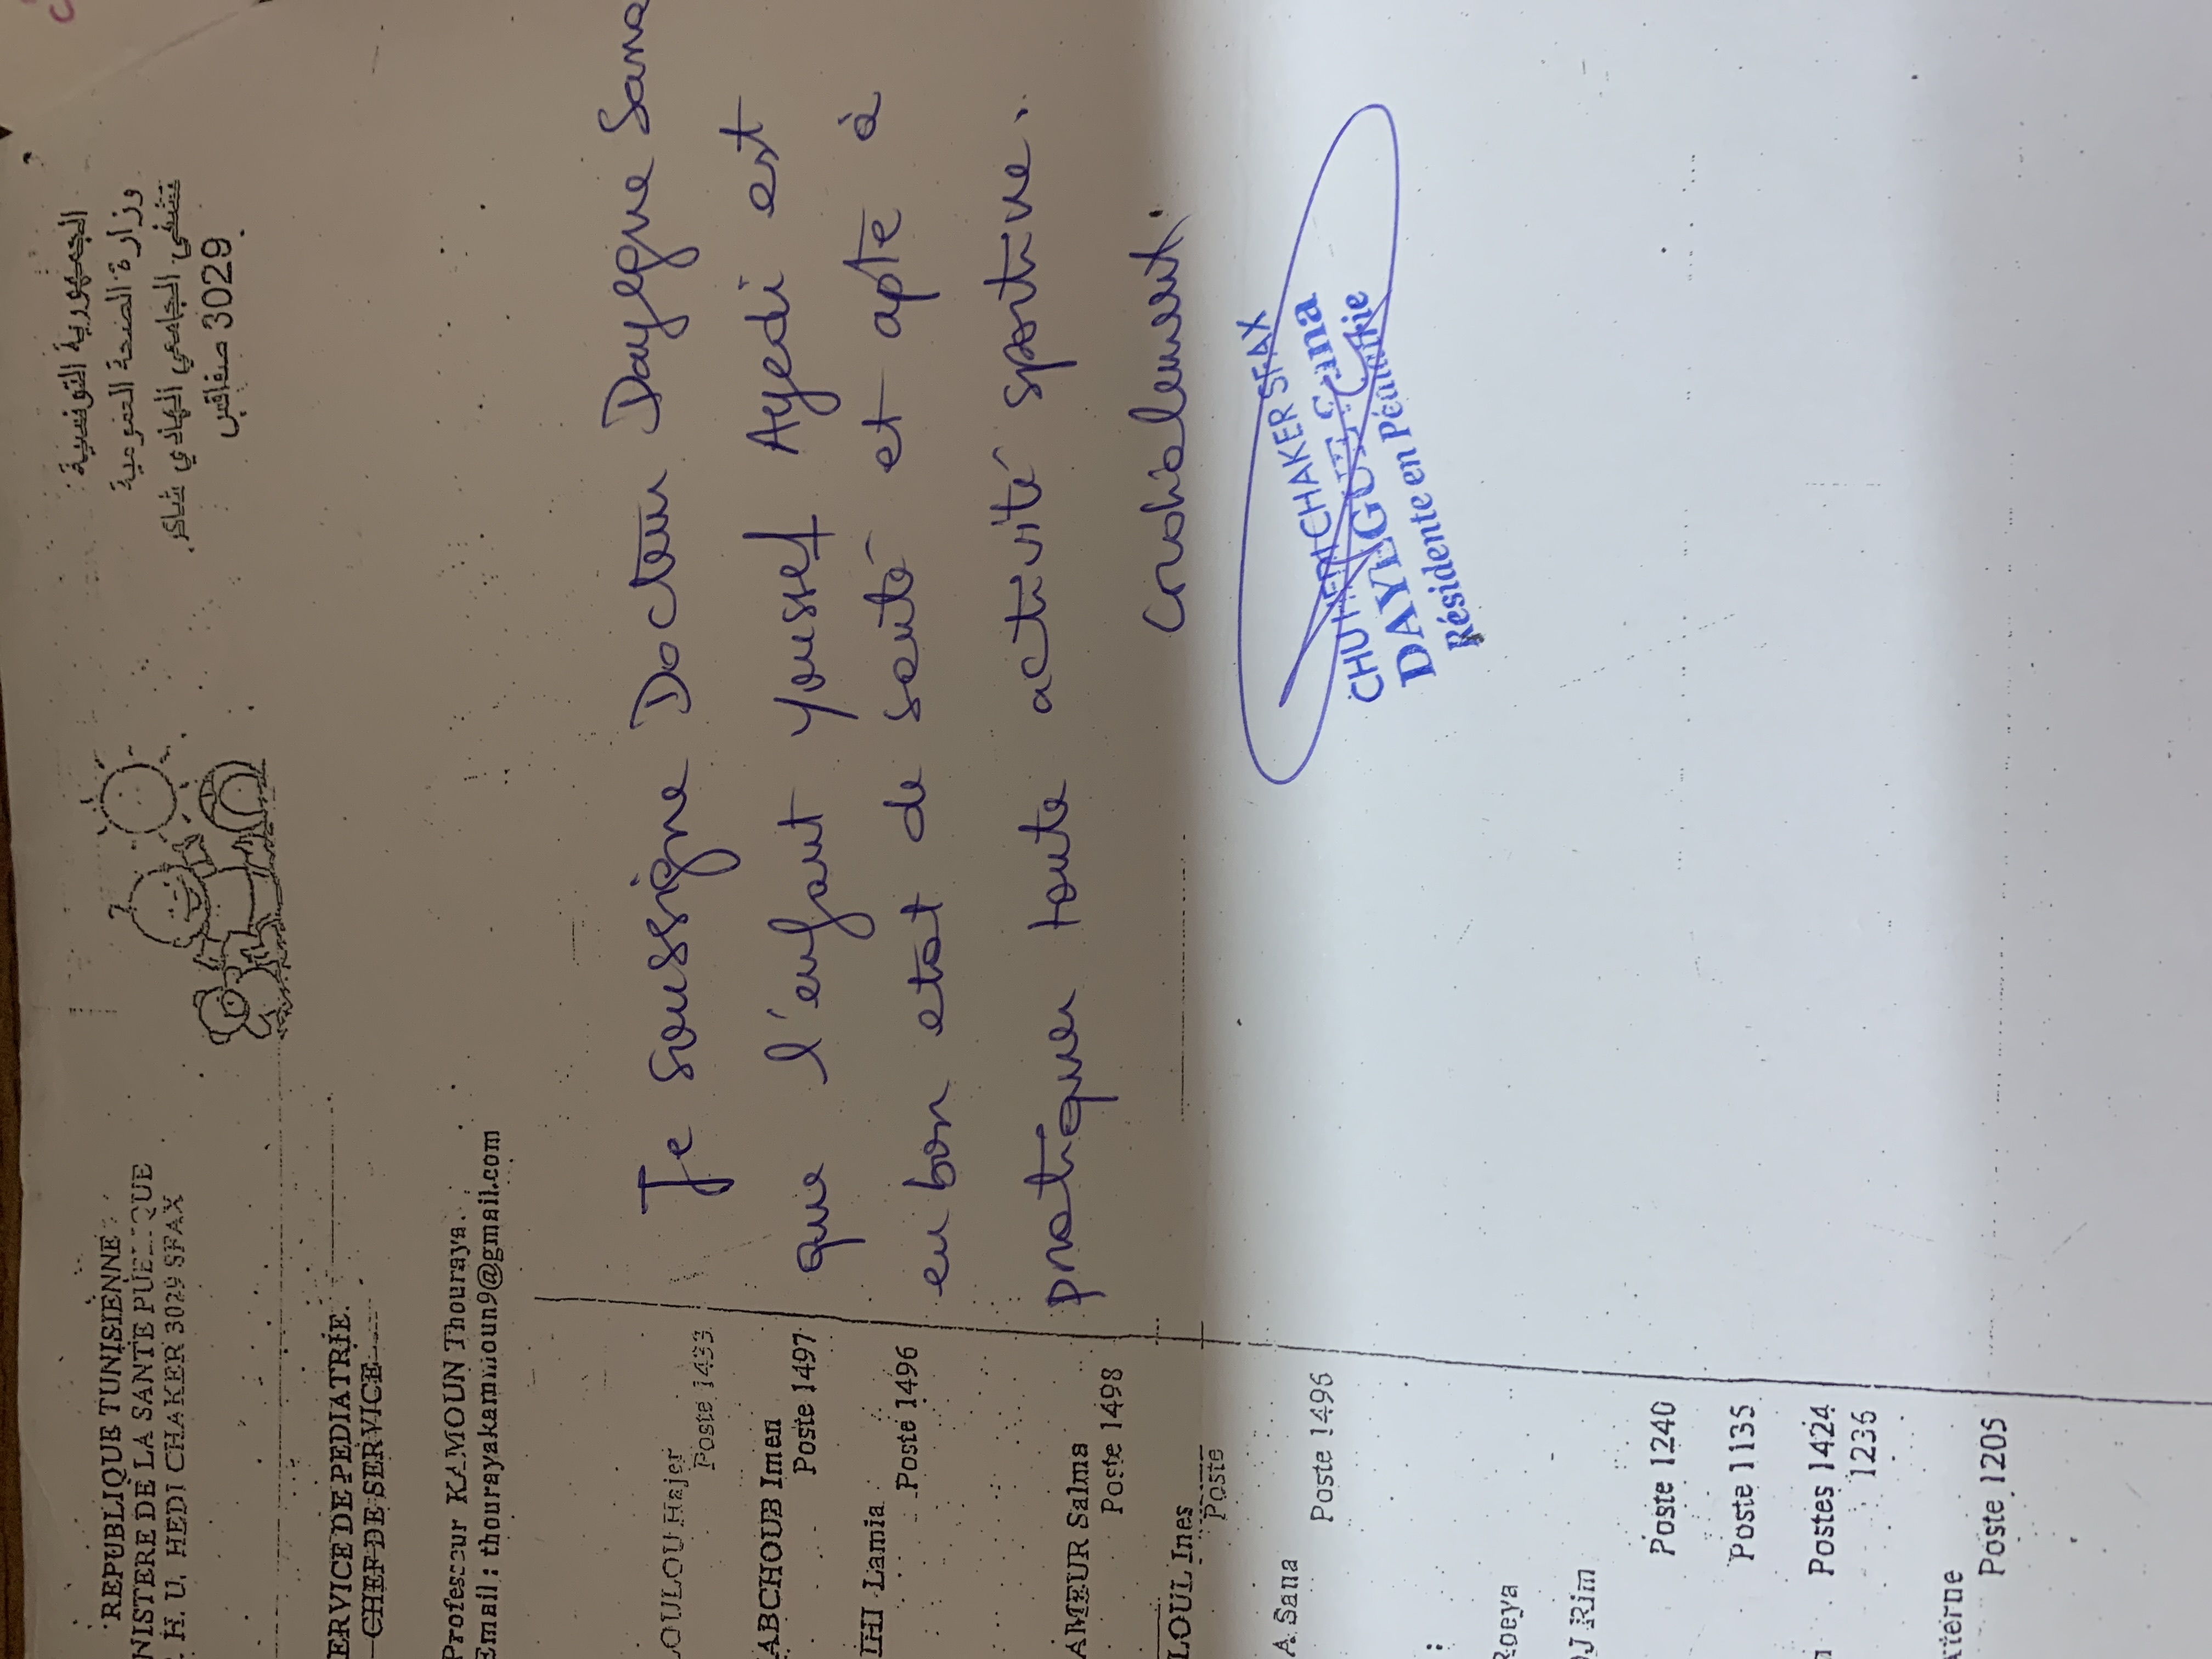 REPUBLIQUE TUNISIENNE
NISTERE DE LA SANTE
H. U. HEDI CHAKER 3029 SFAX
الجمهورية التونسية
وزارة الصحة العمومية
الجامعي الهادي شاكر
3029 صفاقس
ERVICE DE PEDIATRIE
CHEF DE SERVICE
Professeur KAMOUN Thouraya.
Email : thourayakammoun9@gmail.com
OULOU Hajer
Poste 1433
ABCHOUB Imen
Poste 1497
IHI Lamia
Poste 1496
AMEUR Salma
Poste 1498
LOUL Ines
Poste
A Sana
Poste 1496
Roeya
J Rim
Poste 1240
Poste 1135
Postes 1424
1236
terne
Poste 1205
Je soussigne Docteur Daygue Sana
que l'enfant Youssef Ayedi est
en bon etat de santé et apte à
pratiquer toute activité sportive.
Cordialement.
CHU HEDI CHAKER SFAX
Sana
Résidente en Pédiatrie